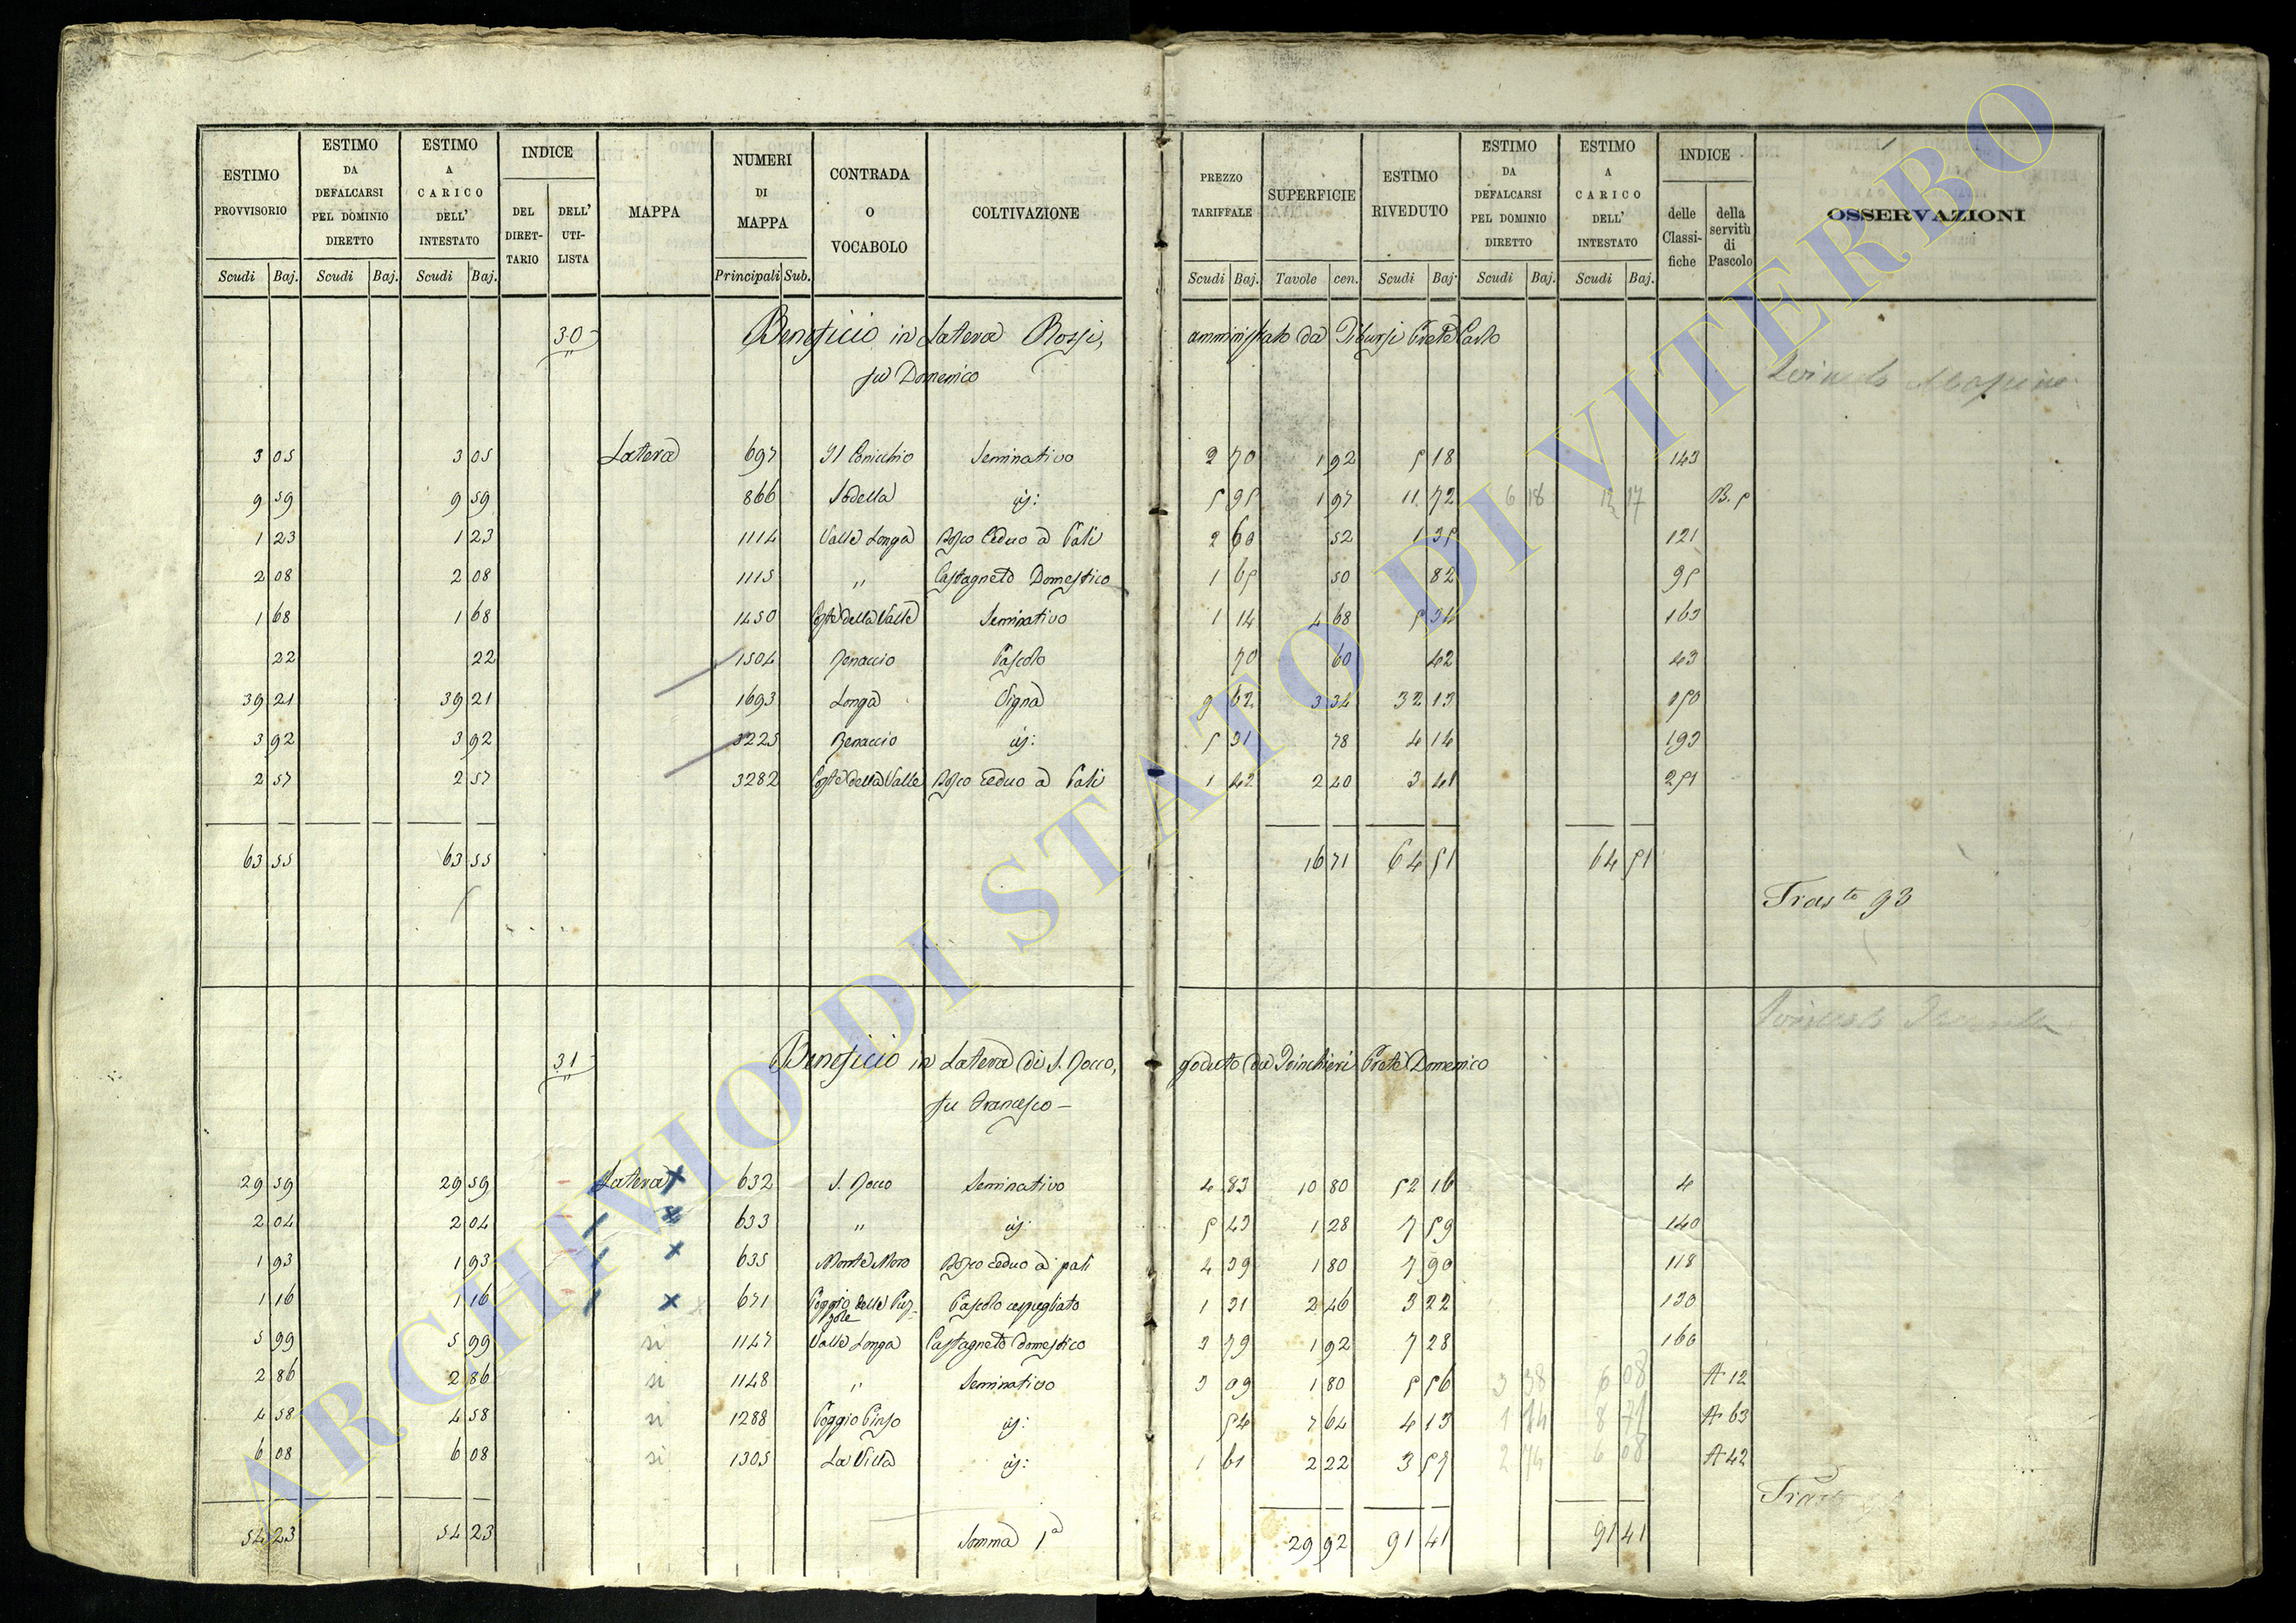 ESTIMO PROVVISORIO | ESTIMO DA DEFALCARSI PEL DOMINIO DIRETTO | ESTIMO A CARICO DELL' INTESTATO | INDICE DEL DIRET-TARIO | DELL' UTI-LISTA | MAPPA | NUMERI DI MAPPA | CONTRADA O VOCABOLO | COLTIVAZIONE | PREZZO TARIFFALE | SUPERFICIE | ESTIMO RIVEDUTO | ESTIMO DA DEFALCARSI PEL DOMINIO DIRETTO | ESTIMO A CARICO DELL' INTESTATO | INDICE delle Classi-fiche | della servitù di Pascolo | OSSERVAZIONI
Scudi | Baj. | Scudi | Baj. | Scudi | Baj. | Principali | Sub. | Scudi | Baj. | Tavole | cen. | Scudi | Baj. | Scudi | Baj. | Scudi | Baj.
30 Beneficio in Latera Rossi, amministrato da Tiburzi Prete Carlo
fu Domenico
3 05 | 3 05 | Latera | 697 | Il Conicchio | Seminativo | 2 70 | 1 92 | 5 18 | 143
9 59 | 9 59 | 866 | Sodella | id: | 5 95 | 1 97 | 11 72 | 6 18 | 12 17 | B. 5
1 23 | 1 23 | 1114 | Valle Longa | Bosco Ceduo a Pali | 2 60 | 52 | 1 35 | 121
2 08 | 2 08 | 1115 | " | Castagneto Domestico | 1 65 | 50 | 82 | 95
1 68 | 1 68 | 1450 | Coste della Valle | Seminativo | 1 14 | 4 68 | 5 34 | 163
22 | 22 | 1504 | Renaccio | Pascolo | 70 | 60 | 42 | 43
39 21 | 39 21 | 1693 | Longa | Vigna | 9 62 | 3 34 | 32 13 | 150
3 92 | 3 92 | 3225 | Renaccio | id: | 5 31 | 78 | 4 14 | 193
2 57 | 2 57 | 3282 | Coste della Valle | Bosco Ceduo a Pali | 1 42 | 2 40 | 3 41 | 251
63 55 | 63 55 | 16 71 | 64 51 | 64 51
Trasto 93
31 Beneficio in Latera di S. Rocco, goduto da Poinchieri Prete Domenico
fu Francesco -
29 59 | 29 59 | Latera | 632 | S. Rocco | Seminativo | 4 83 | 10 80 | 52 16 | 4
2 04 | 2 04 | 633 | " | id: | 5 43 | 1 28 | 7 59 | 140
1 93 | 1 93 | 635 | Monte Moro | Bosco Ceduo a pali | 4 39 | 1 80 | 7 90 | 118
1 16 | 1 16 | 671 | Poggio delle Puz-zole | Pascolo cespugliato | 1 31 | 2 46 | 3 22 | 130
5 99 | 5 99 | si | 1147 | Valle Longa | Castagneto domestico | 3 79 | 1 92 | 7 28 | 160
2 86 | 2 86 | si | 1148 | " | Seminativo | 3 09 | 1 80 | 5 56 | 3 38 | 6 08 | A 12
4 58 | 4 58 | si | 1288 | Poggio Pinzo | id: | 54 | 7 64 | 4 13 | 1 14 | 8 71 | A 63
6 08 | 6 08 | si | 1305 | La Villa | id: | 1 61 | 2 22 | 3 57 | 2 74 | 6 08 | A 42
Trasto
54 23 | 54 23 | Somma 1a | 29 92 | 91 41 | 91 41
ARCHIVIO DI STATO DI VITERBO